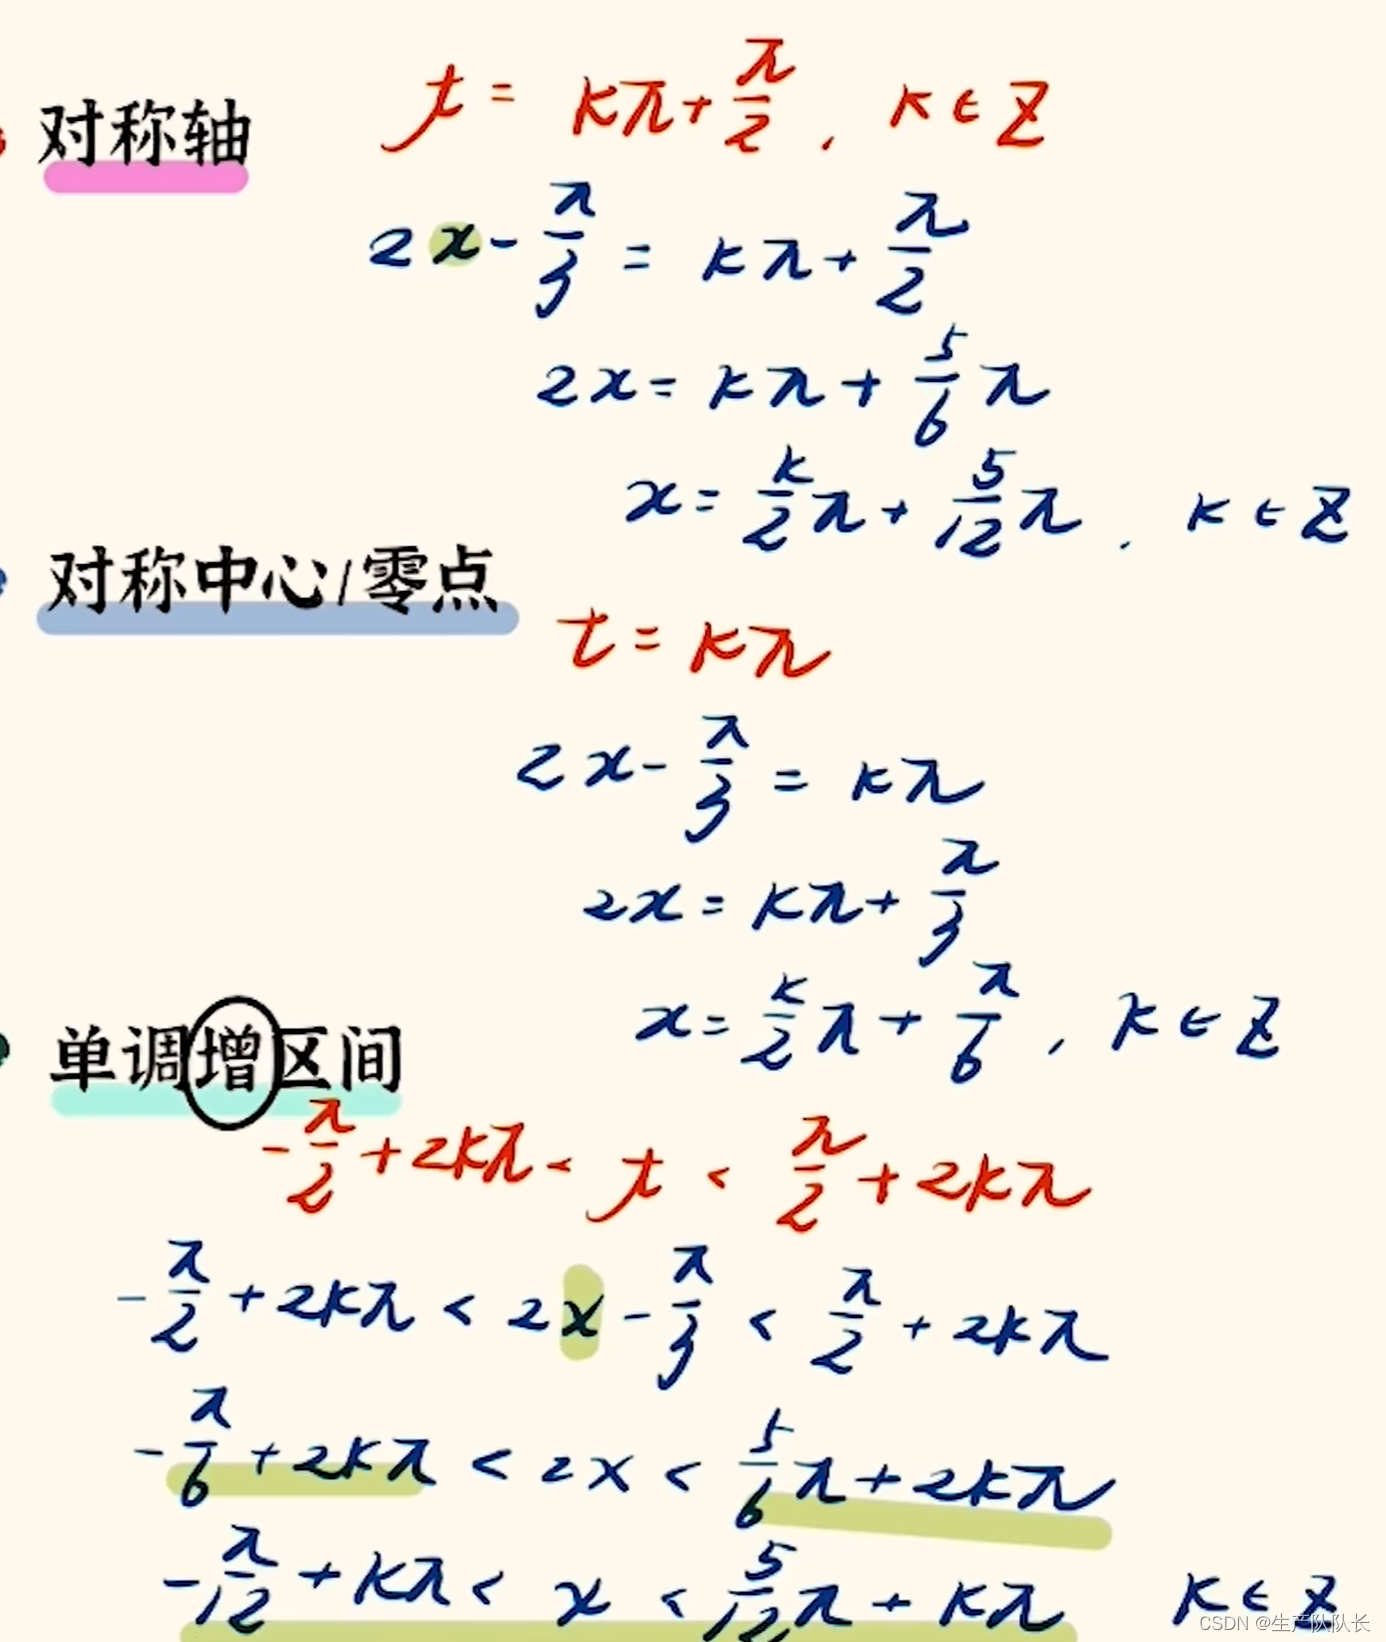 对称轴 t = kπ + π/2 , k ∈ Z
2x - π/3 = kπ + π/2
2x = kπ + 5/6 π
x = k/2 π + 5/12 π , k ∈ Z
对称中心/零点
t = kπ
2x - π/3 = kπ
2x = kπ + π/3
x = k/2 π + π/6 , k ∈ Z
单调增区间
-π/2 + 2kπ < t < π/2 + 2kπ
-π/2 + 2kπ < 2x - π/3 < π/2 + 2kπ
-π/6 + 2kπ < 2x < 5/6 π + 2kπ
-π/12 + kπ < x < 5/12 π + kπ k ∈ Z
CSDN @生产队队长